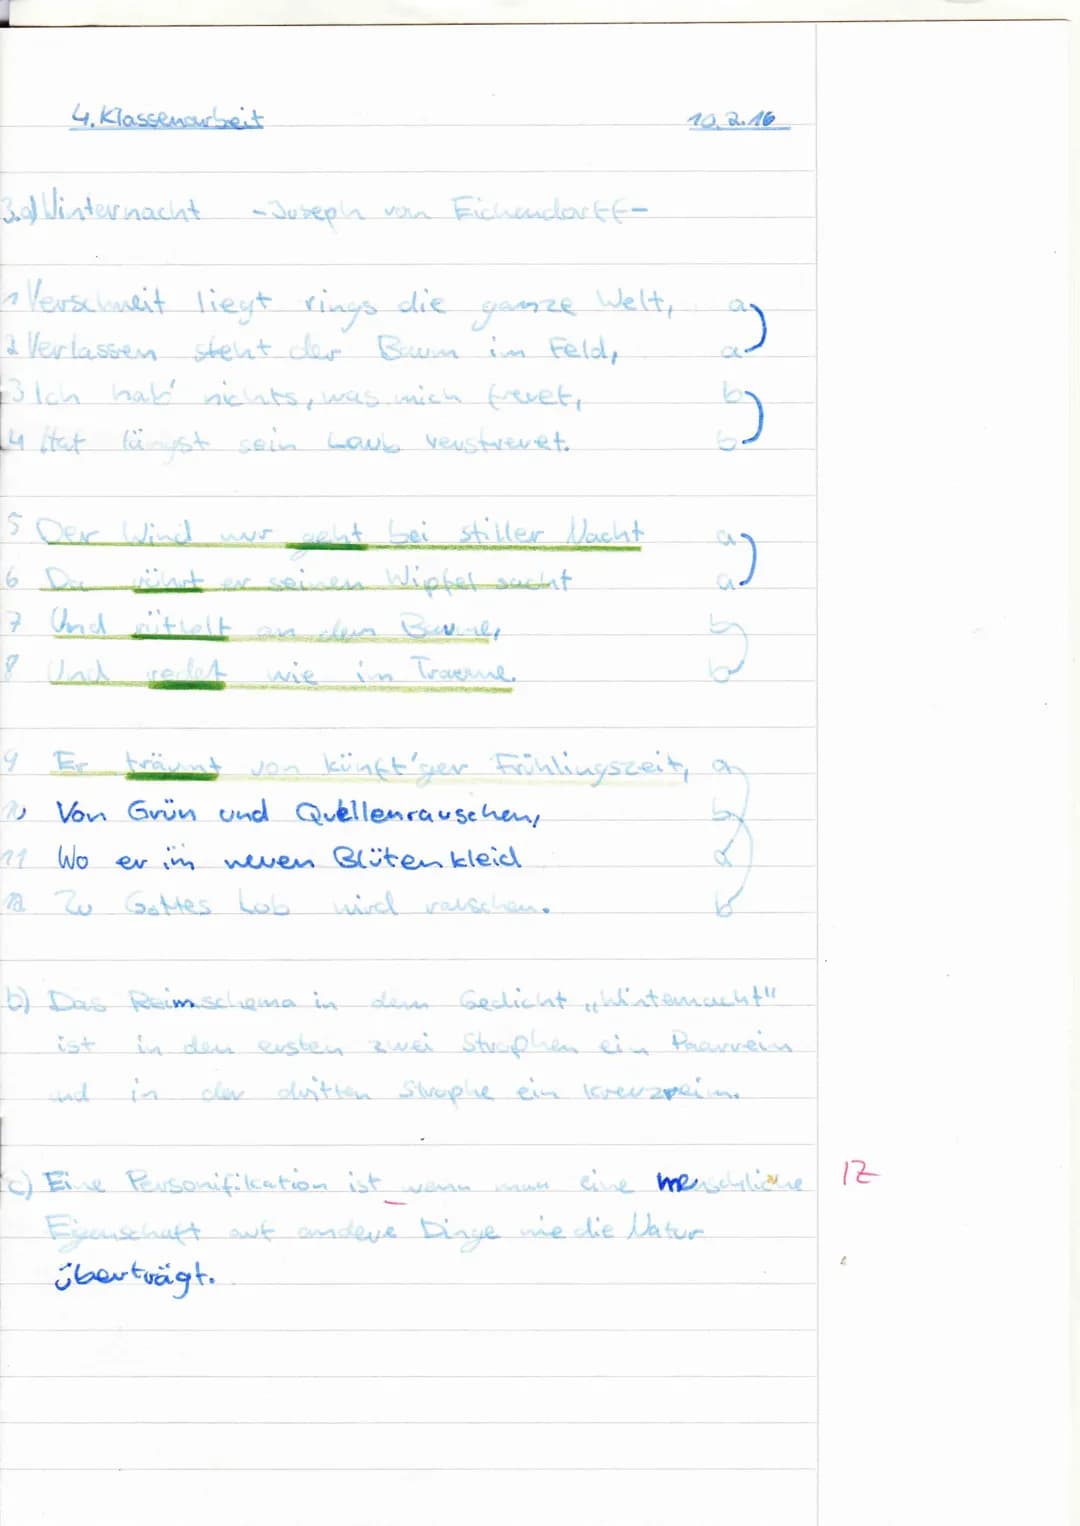 4. Klassenarbeit 10.2.16
3.a) Winternacht - Joseph von Eichendorff -
1 Verschneit liegt rings die ganze Welt, a
2 Verlassen steht der Baum im Feld, a
3 Ich hab' nichts, was mich freuet, b
4 Hat längst sein Laub verstreuet. b
5 Der Wind nur geht bei stiller Nacht a
6 Da rührt er seinen Wipfel sacht a
7 Und rüttelt an dem Baume, b
8 Und redet wie im Traume. b
9 Er träumt von künft'ger Frühlingszeit, a
10 Von Grün und Quellenrauschen, b
11 Wo er im neuen Blütenkleid a
12 Zu Gottes Lob wird rauschen. b
b) Das Reimschema in dem Gedicht „Winternacht"
ist in den ersten zwei Strophen ein Paarreim
und in der dritten Strophe ein Kreuzreim.
c) Eine Personifikation ist wenn man eine menschliche IZ
Eigenschaft auf andere Dinge wie die Natur
überträgt.